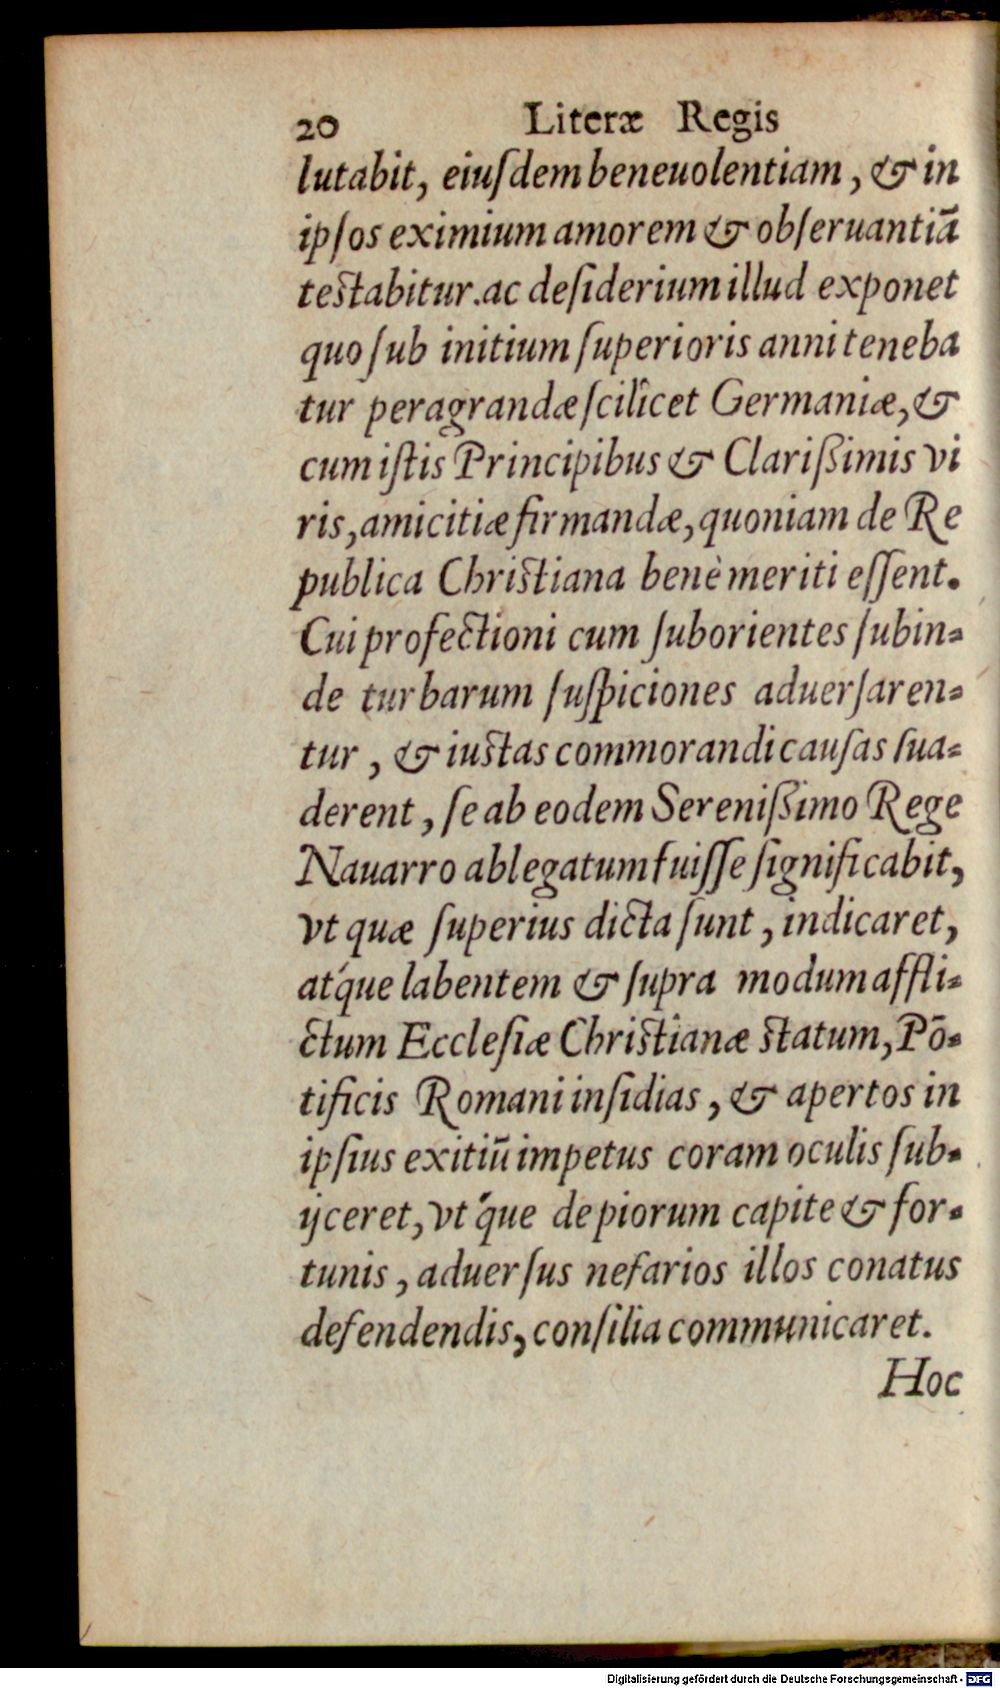 20 Literæ Regis
lutabit, eiuſdem beneuolentiam, & in
ipſos eximium amorem & obſeruantiã
teſtabitur. ac deſiderium illud exponet
quo ſub initium ſuperioris anni teneba
tur peragrandæ ſcilicet Germaniæ, &
cum iſtis Principibus & Clarißimis vi
ris, amicitiæ firmandæ, quoniam de Re
publica Chriſtiana benè meriti eſſent.
Cui profectioni cum ſuborientes ſubin-
de turbarum ſuſpiciones aduerſaren-
tur, & iuſtas commorandi cauſas ſua-
derent, ſe ab eodem Serenißimo Rege
Nauarro ablegatum fuiſſe ſignificabit,
vt quæ ſuperius dicta ſunt, indicaret,
at́que labentem & ſupra modum affli-
ctum Eccleſiæ Chriſtianæ ſtatum, Põ-
tificis Romani inſidias, & apertos in
ipſius exitiũ impetus coram oculis ſub-
ijceret, vt q́ue de piorum capite & for-
tunis, aduerſus nefarios illos conatus
defendendis, conſilia communicaret.
Hoc
Digitalisierung gefördert durch die Deutsche Forschungsgemeinschaft - DFG